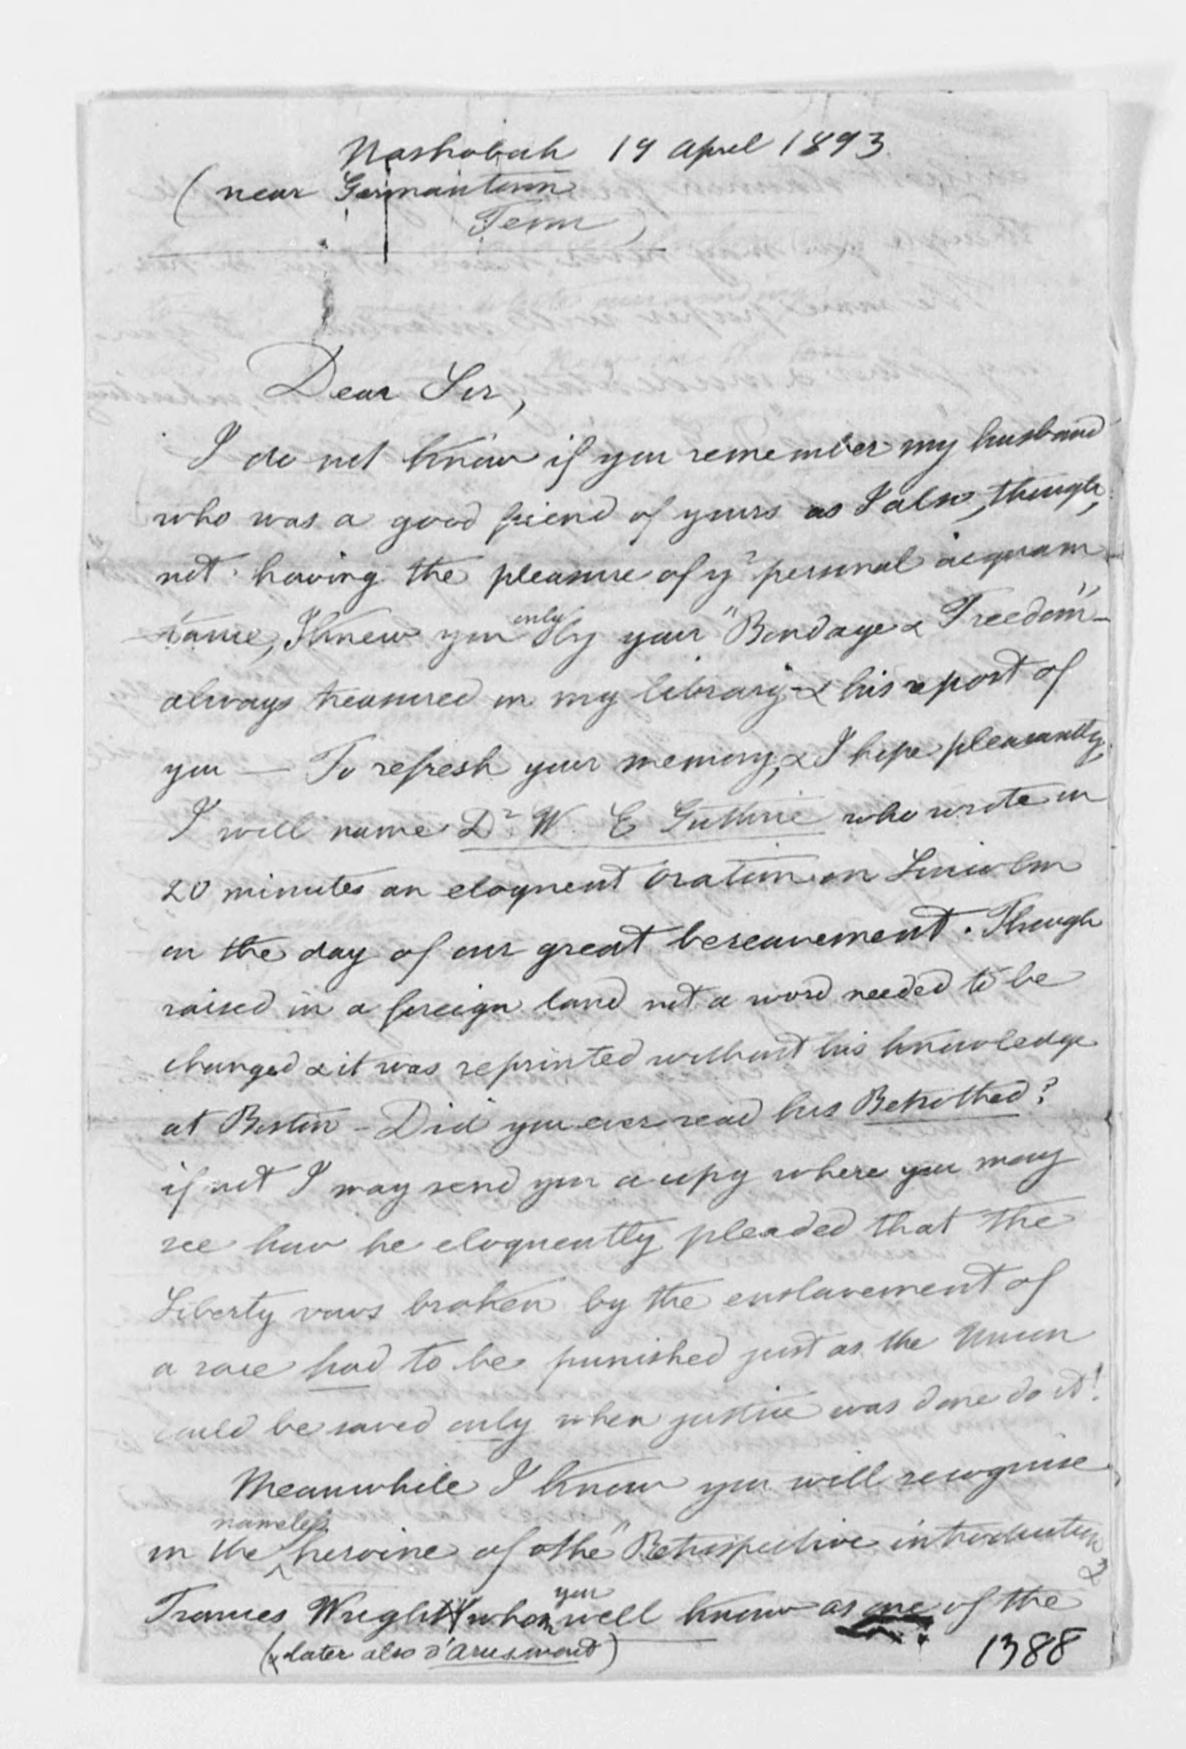 Nashobah 19 April 1893.
(near Germantown
Tenn)
Dear Sir,
I do not know if you remember my husband
who was a good friend of yours as I also, though,
not having the pleasure of yr personal acquain
tance, I knew you only by your "Bondage & Freedom" –
always treasured in my library – & his report of
you — To refresh your memory, & I hope pleasantly,
I will name Dr. W. E Guthrie who wrote in
20 minutes an eloquent oration on Lincoln
on the day of our great bereavement. Though
raised in a foreign land not a word needed to be
changed & it was reprinted without his knowledge
at Boston – Did you ever read his Betrothed?
if not I may send you a copy where you may
see how he eloquently pleaded that the
Liberty vows broken by the enslavement of
a race had to be punished just as the Union
could be saved only when justice was done do it!
Meanwhile I know you will recognise
in the nameless heroine of the "Retrospective introduction &
Frances Wright (whom you well know as one of the
(later also d'Arusmont)
1388